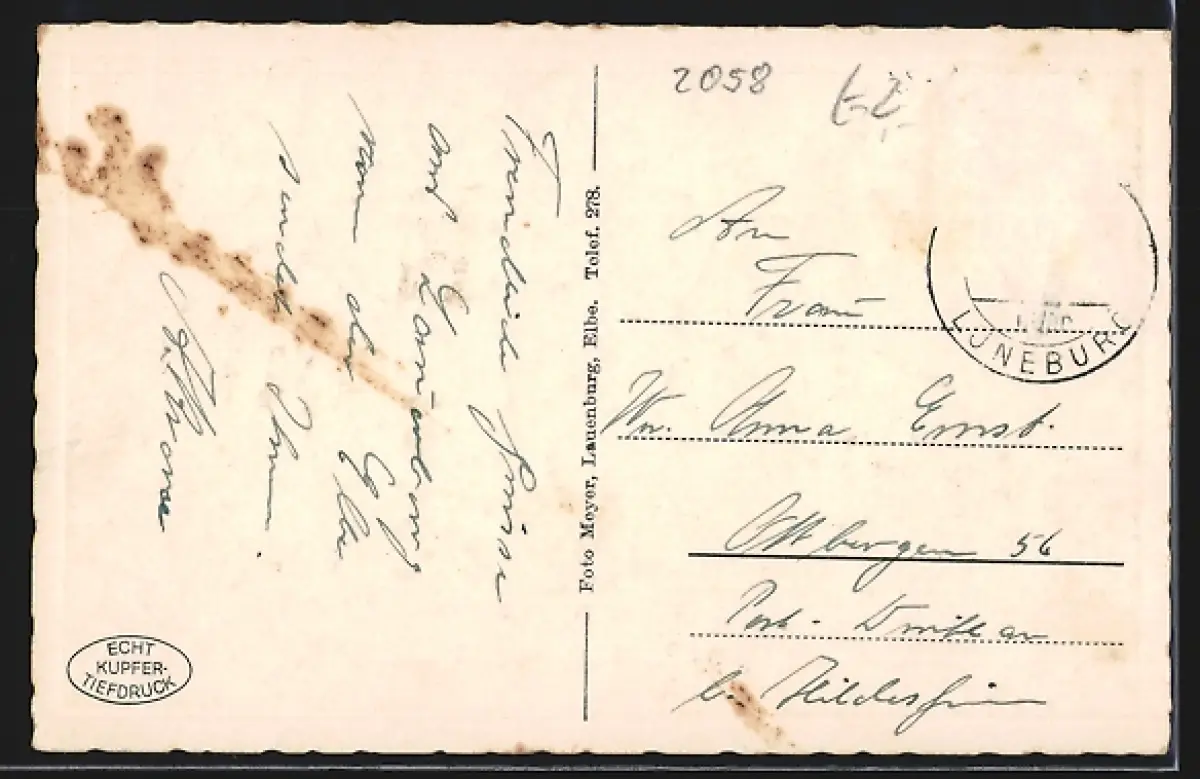 Freundliche Grüsse
aus Lauenburg
an der Elbe
sendet Ihnen
Foto Meyer, Lauenburg, Elbe. Telef. 278.
ECHT
KUPFER-
TIEFDRUCK
2058
LÜNEBURG
An
Frau
Ww. Anna Ernst.
Ottbergen 56
Post-
b. Hildesheim